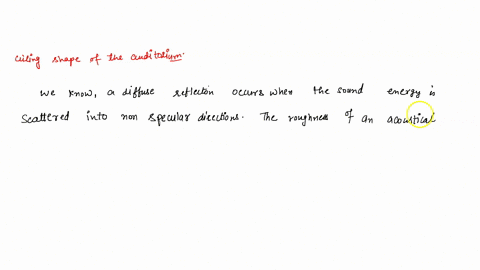 ceiling shape of the auditorium.
We know, a diffuse reflection occurs when the sound energy is
scattered into non specular directions. The roughness of an acoustical